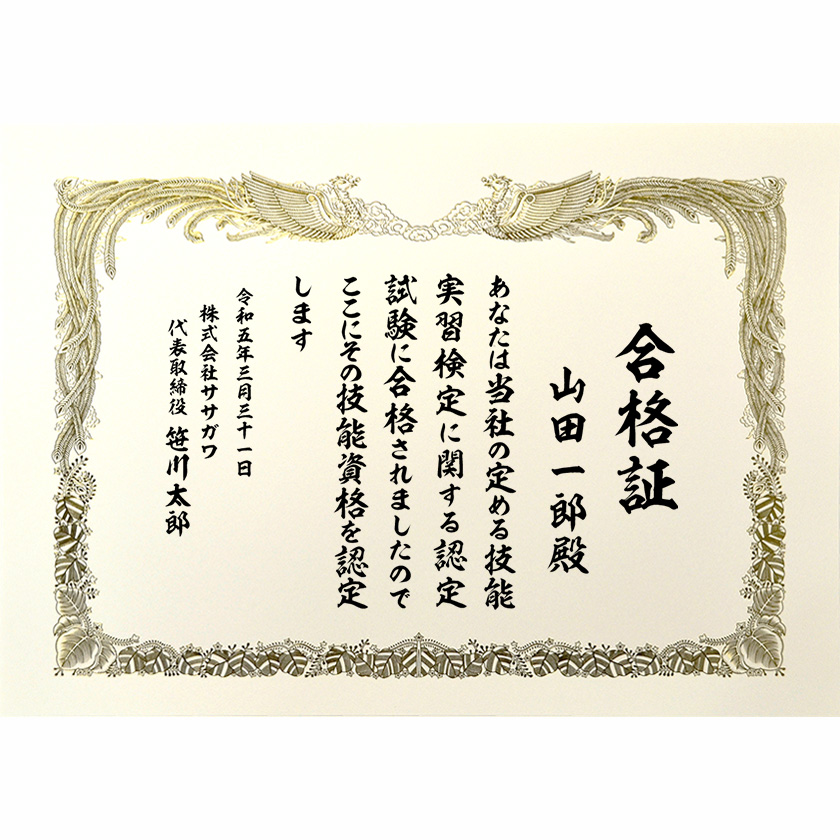 合格証
山田一郎殿
あなたは当社の定める技能
実習検定に関する認定
試験に合格されましたので
ここにその技能資格を認定
します
令和五年三月三十一日
株式会社ササガワ
代表取締役 笹川太郎